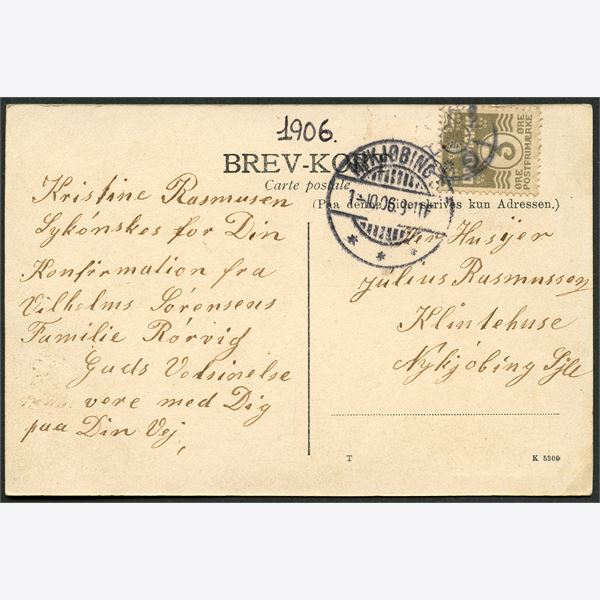 1906.
BREV-KO
Carte postale
(Paa denne Side skrives kun Adressen.)
NYKJØBING
1-10.06.9-11F
3
ØRE
POSTFRIMÆRKE
ØRE
Kristine Rasmusen
Lykonskes for Din
Konfirmation fra
Vilhelms Sørensens
Familie Rørvig
Guds Velsinelse
vere med Dig
paa Din Vej,
Hr Husijer
Julius Rasmussen
Klintehuse
Nykjøbing Sjll
T
K 5309